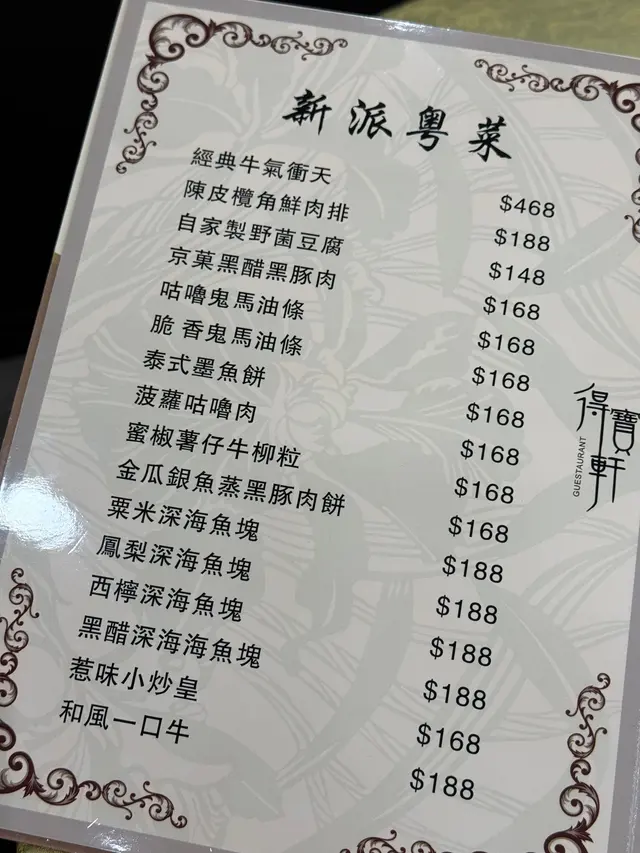 新派粵菜
經典牛氣衝天 $468
陳皮欖角鮮肉排 $188
自家製野菌豆腐 $148
京菓黑醋黑豚肉 $168
咕嚕鬼馬油條 $168
脆 香鬼馬油條 $168
泰式墨魚餅 $168
菠蘿咕嚕肉 $168
蜜椒薯仔牛柳粒 $168
金瓜銀魚蒸黑豚肉餅 $168
粟米深海魚塊 $188
鳳梨深海魚塊 $188
西檸深海魚塊 $188
黑醋深海海魚塊 $188
惹味小炒皇 $168
和風一口牛 $188
得寶軒
GUESTAURANT